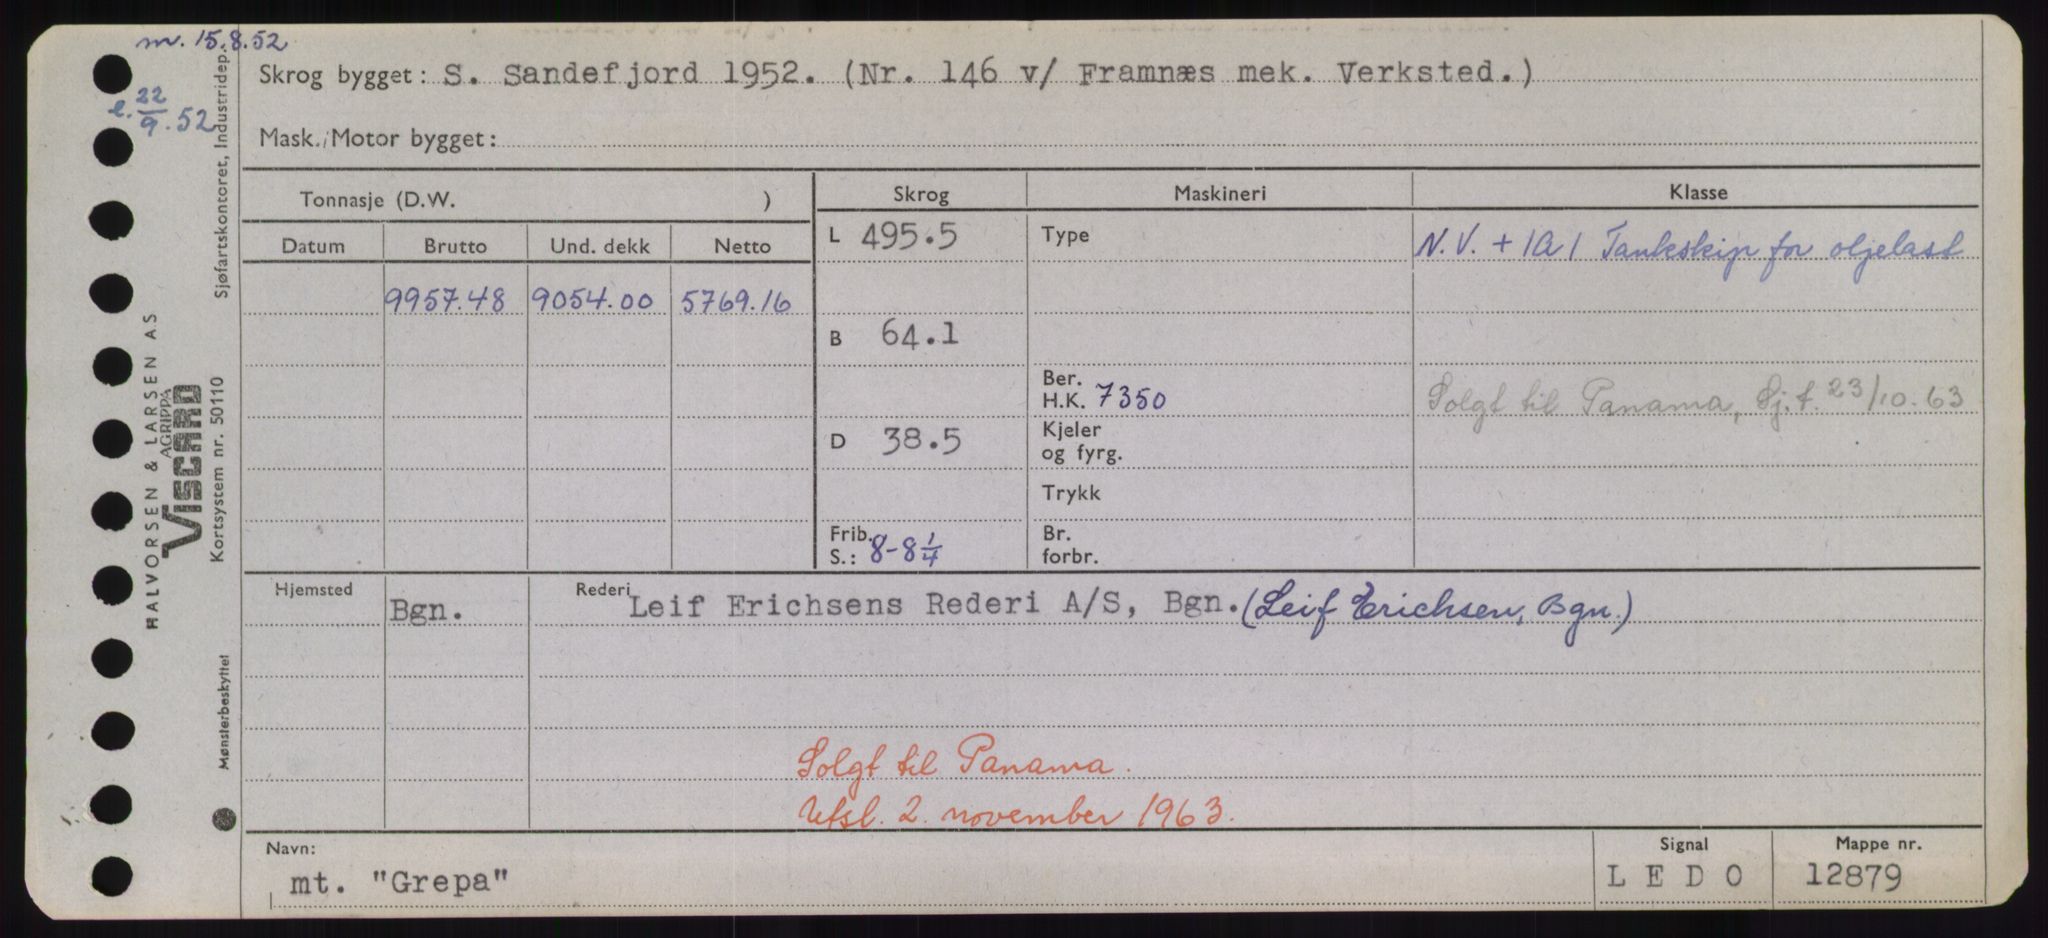 m. 15.8.52
Skrog bygget: S. Sandefjord 1952. (Nr. 146 v/ Framnæs mek. Verksted.)
l. 22/9.52
Mask./Motor bygget:
Tonnasje (D.W. )
Skrog
Maskineri
Klasse
Datum
Brutto
Und. dekk
Netto
L 495.5
Type
N.V. + 1A1 Tankskip for oljelast
9957.48
9054.00
5769.16
B 64.1
Ber.
H.K. 7350
Solgt til Panama, Sj.f. 23/10.63
D 38.5
Kjeler
og fyrg.
Trykk
Frib.
S.: 8-8 1/4
Br.
forbr.
Hjemsted
Bgn.
Rederi
Leif Erichsens Rederi A/S, Bgn. (Leif Erichsen, Bgn.)
Solgt til Panama.
Utsl. 2. november 1963.
Navn:
mt. "Grepa"
Signal
L E D O
Mappe nr.
12879
HALVORSEN & LARSEN A.S
AGRIPPA
VISCARD
Sjøfartskontoret, Industridep.
Kortsystem nr. 50110
Mønsterbeskyttet